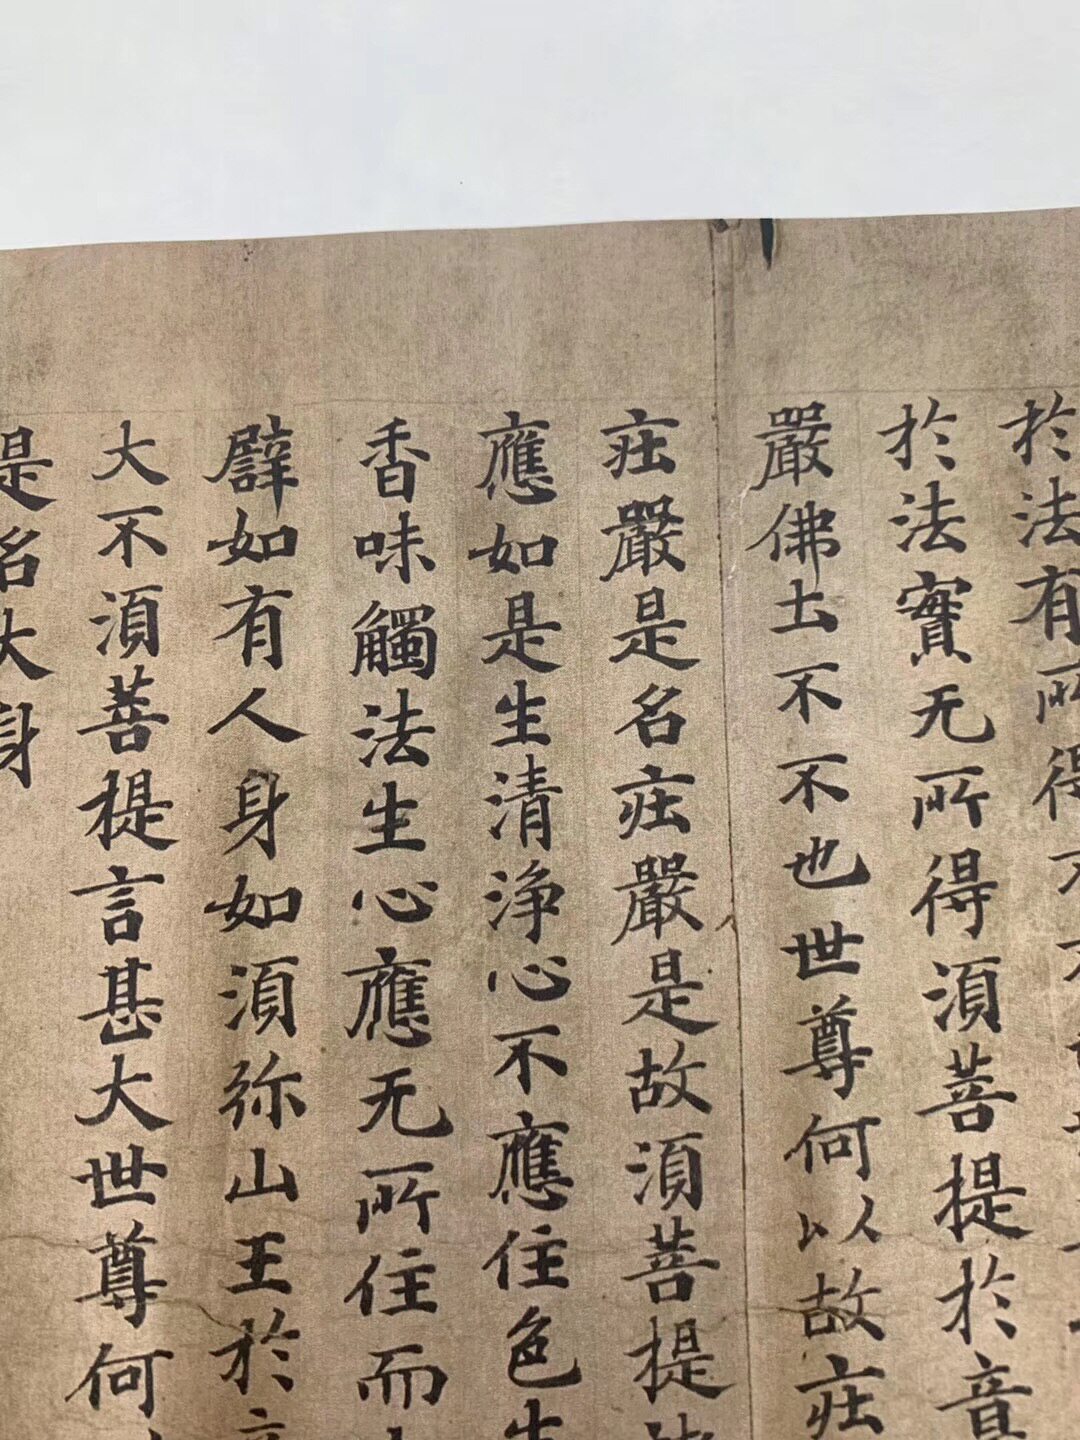 於法有所得不
於法實无所得湏菩提於音
嚴佛土不不也世尊何以故疘
疘嚴是名疘嚴是故湏菩提
應如是生清淨心不應住色生
香味觸法生心應无所住而
譬如有人身如湏弥山王於
大不湏菩提言甚大世尊何
是名大身